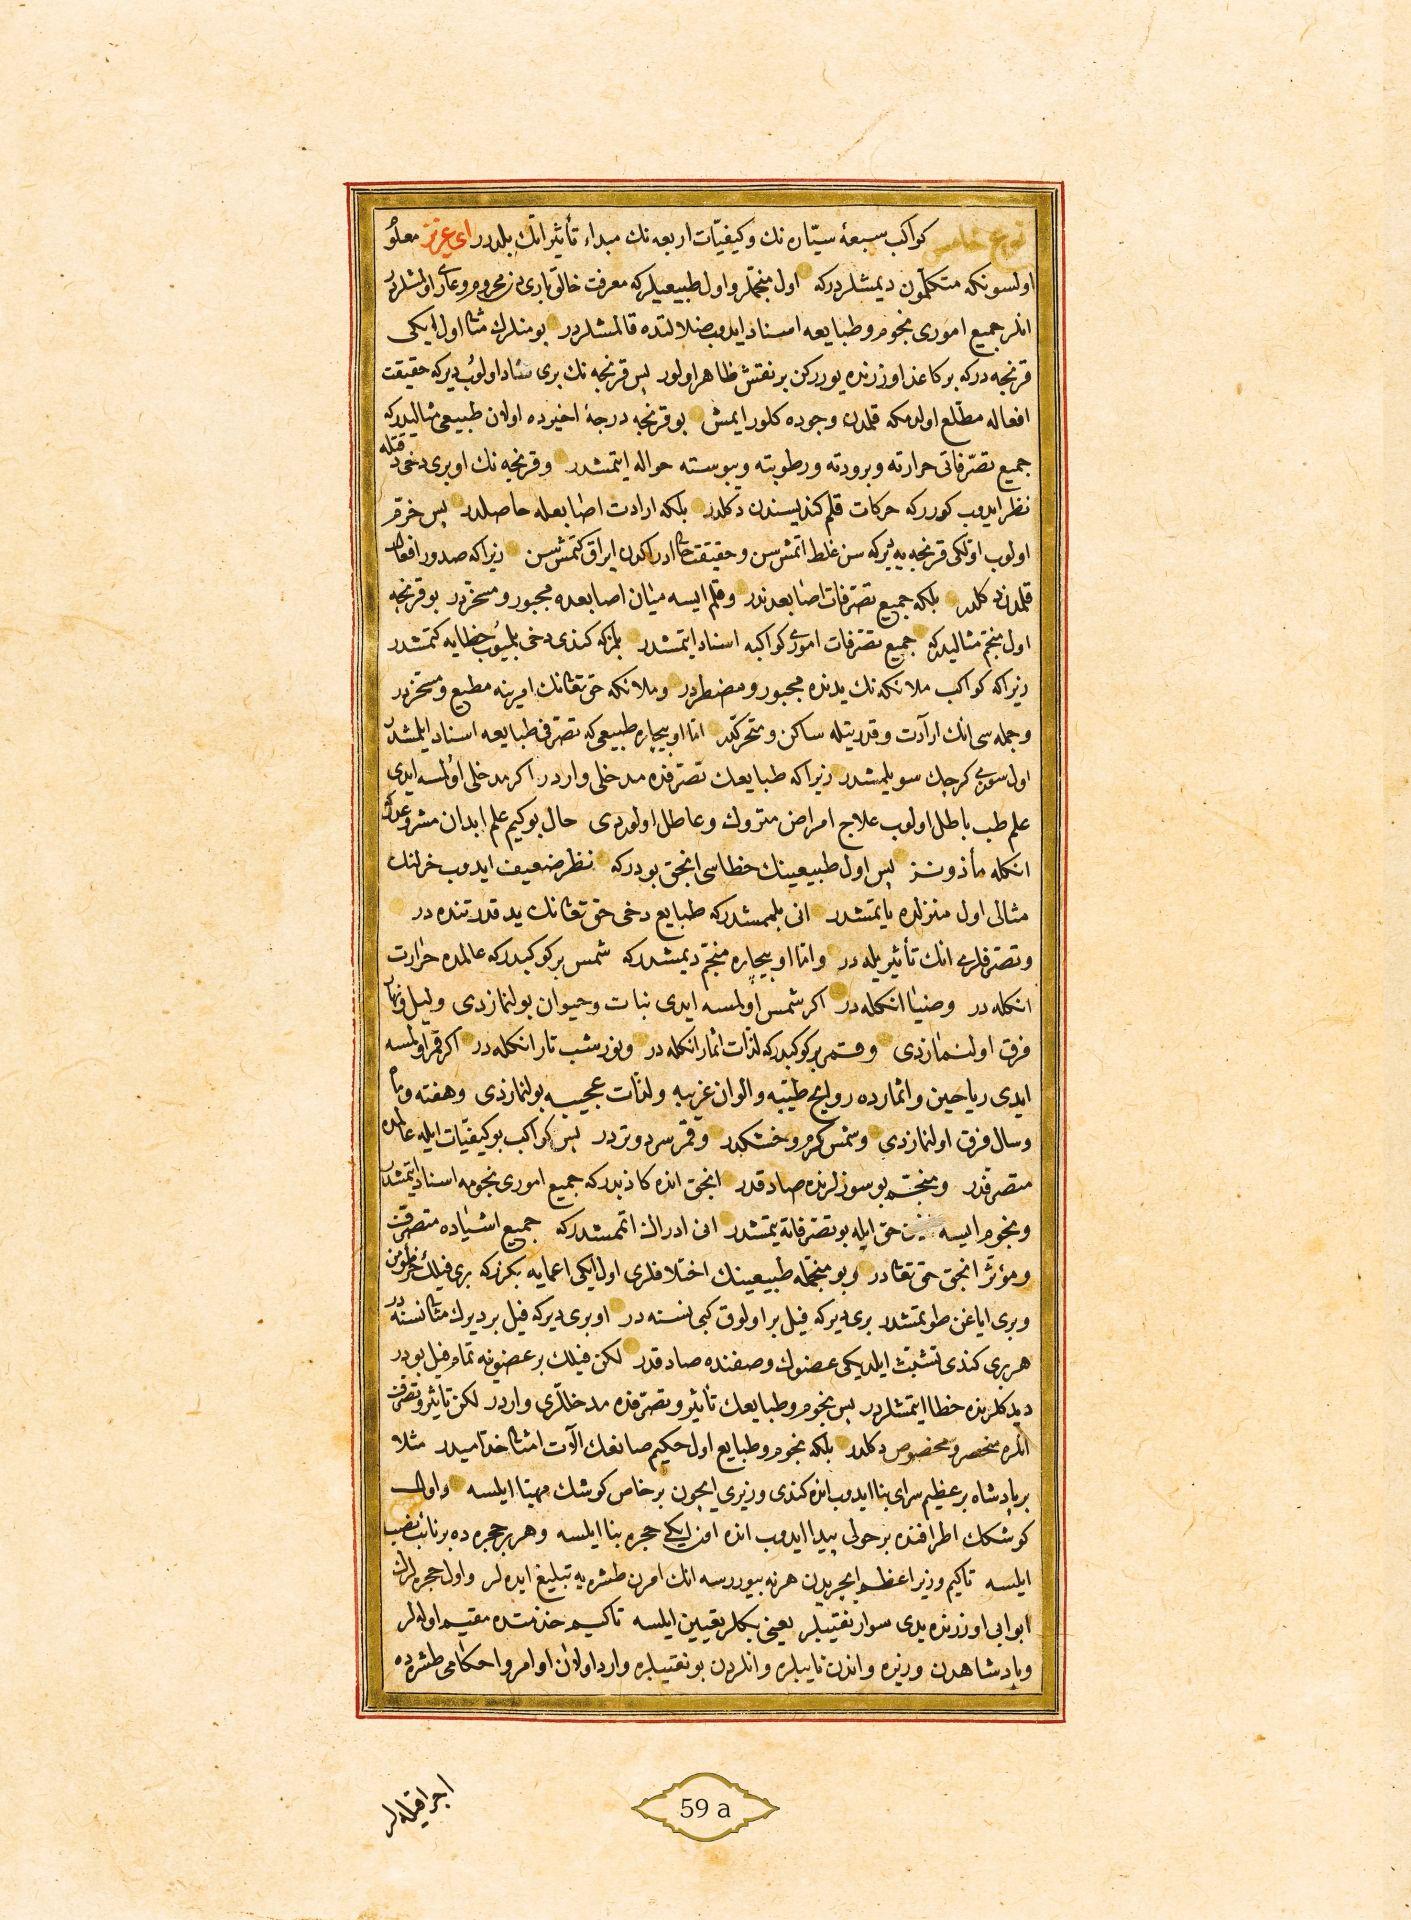 نوع خامس كواكب سبعۀ سيّاره نك وكيفيّات اربعه نك مبداء تأثيراتك بلدرر اى عزيز معلوم
اولسونكه متكلّمون ديمشلردركه اول منجّملر و اول طبيعيلركه معرفت خالق بارى دن محروم و عارى اولمشلردر
انلر جميع امورى نجوم و طبايعه اسناد ايدوب ضلالتده قالمشلردر بونلرك مثالى اول ايكى
قرنجه دركه بر كاغد اوزرنده يوررركن بر نقش ظاهر اولور پس قرنجه نك برى شاد اولوب ديركه حقيقت
افعاله مطّلع اولدمكه قلمدن وجوده كلور ايمش بو قرنجه درجۀ اخيرده اولان طبيعى مثاليدركه
جميع تصرّفاتى حرارته و برودته و رطوبته و يبوسته حواله ايتمشدر و قرنجه نك اوبرى دخى دقتله
نظر ايدوب كورركه حركات قلم كنديسندن دكلدر بلكه ارادت اصابعله حاصلدر پس خرّم
اولوب اوّلكى قرنجه يه ديركه سن غلط اتمش سن و حقيقت حال ادراكدن ايراق كتمش سن زيراكه صدور افعال
قلمدن دكلدر بلكه جميع تصرّفات اصابعدندر و قلم ايسه ميان اصابعده مجبور و مسخّردر بو قرنجه
اول منجّم مثاليدركه جميع تصرّفات امورى كواكبه اسناد ايتمشدر بلمزكه كندى دخى بلميوب خطايه كتمشدر
زيراكه كواكب ملائكه نك يدنده مجبور و مضطردر و ملائكه حق تعالى نك امرينه مطيع و مسخّردر
و جمله سى انك ارادت و قدرتيله ساكن و متحرّكدر امّا او بيچاره طبيعى كه تصرّفى طبايعه اسناد ايلمشدر
اول سوزى كرجك سويلمشدر زيراكه طبايعك تصرّفده مدخلى واردر اكر مدخلى اولمسه ايدى
علم طب باطل اولوب علاج امراض متروك و عاطل اولوردى حال بوكيم علم ابدان مشروعدر
انكله مأذونز پس اول طبيعينك خطاسى انجق بودركه نظر ضعيف ايدوب خرلنك
مثالى اول منزلده ياتمشدر انى بلممشدركه طبايع دخى حق تعالى نك يد قدرتنده در
و تصرّفلرى انك تأثيريله در و امّا او بيچاره منجّم ديمشدركه شمس بر كوكبدركه عالمده حرارت
انكله در و ضيا انكله در اكر شمس اولمسه ايدى نبات و حيوان بولنمازدى و ليل و نهار
فرق اولنمازدى و قمر بر كوكبدركه لذّات اثمار انكله در و نور شب تار انكله در اكر قمر اولمسه
ايدى رياحين و اثمارده روايح طيّبه و الوان غريبه و لذّات عجيبه بولنمازدى و هفته و ماه
و سال فرق اولنمازدى و شمس كرم و خشكدر و قمر سرد و تردر پس كواكب بو كيفيّات ايله عالمده
متصرّفدر و منجّم بو سوزلرنده صادقدر انجق انده كاذبدركه جميع امورى نجومه اسناد ايتمشدر
و نجوم ايسه حق ايله بو تصرّفاته يتمشدر انى ادراك اتممشدركه جميع اشياده متصرّف
و مؤثّر انجق حق تعالى در و بو منجّمله طبيعينك اختلافلرى اول ايكى اعمايه بكزركه برى فيلك خرطومن
و برى اياغن طوتمشلر برى ديركه فيل بر اولوق كبى نسنه در اوبرى ديركه فيل بر ديرك مثالى نسنه در
هر برى كندى تشبّث ايلديكى عضوك وصفنده صادقدر لكن فيلك بر عضونه تمام فيل بودر
ديدكلرنده خطا ايتمشلردر پس نجوم و طبايعك تأثير و تصرّفده مدخللرى واردر لكن تأثير و تصرّف
انلره منحصر و مخصوص دكلدر بلكه نجوم و طبايع اول حكيم صانعك آلات امثال خدّاميدر مثلا
بر پادشاه بر عظيم سراى بنا ايدوب انده كندى وزيرى ايچون بر خاص كوشك مهيّا ايلسه و اول
كوشكك اطرافنده بر حولى پيدا ايدوب انده اون ايكى حجره بنا ايلسه و هر بر حجره ده بر نائب نصب
ايلسه تاكيم وزير اعظم ايچريدن هر نه بيوررسه انك امرن طشره يه تبليغ ايده لر و اول حجره لرك
ابوابى اوزرنده يدى سوار نقيبلر يعنى بكلر تعيين ايلسه تاكيم خذمتده مقيم اوله لر
و پادشاهدن وزيره و اندن نايبلره و انلردن بو نقيبلره وارد اولان اوامر و احكامى طشره ده
59 a
اجرا قيله لر